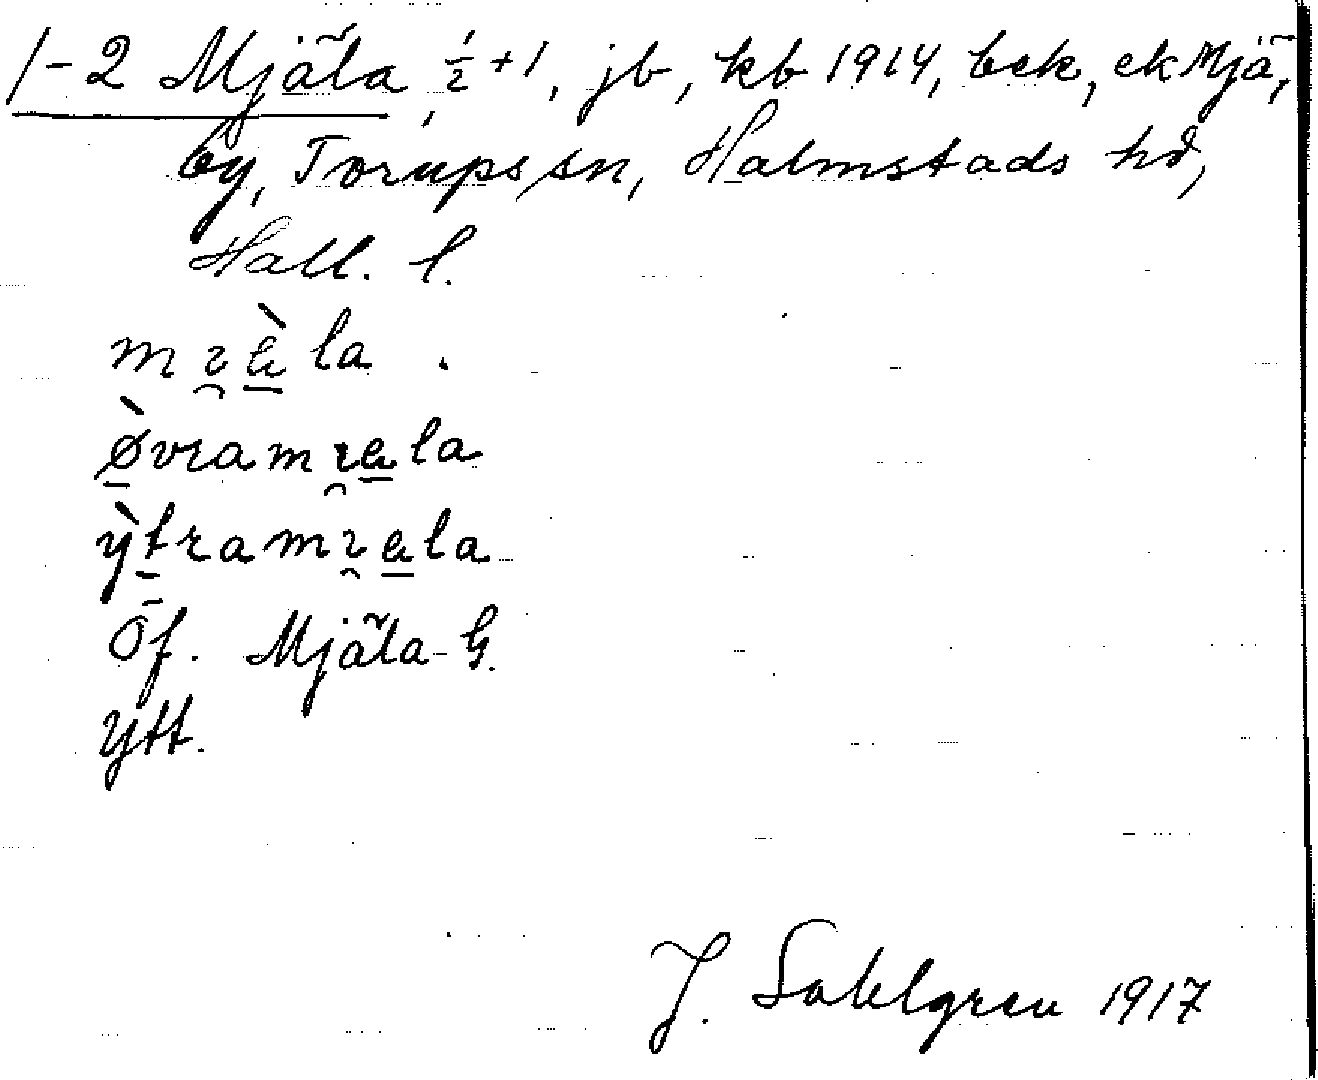 1-2 Mjäla, ½+1, jb, kb 1914, bek, ek Mjä,
by, Torups sn, Halmstads hd,
Hall. l.
mɩ̯æ̀la
ø̀vramɩ̯æla
ỳtramɩ̯æla
Öf. Mjäla G.
Ytt.
J. Sahlgren 1917